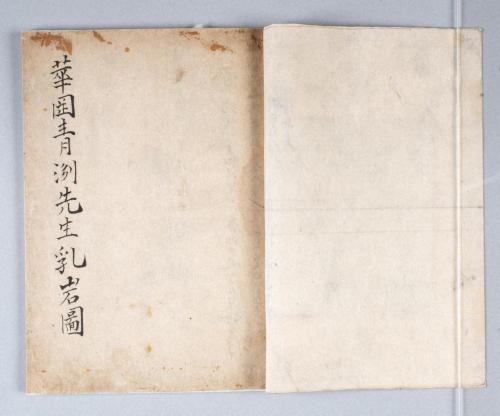 華岡青洌先生乳岩圖